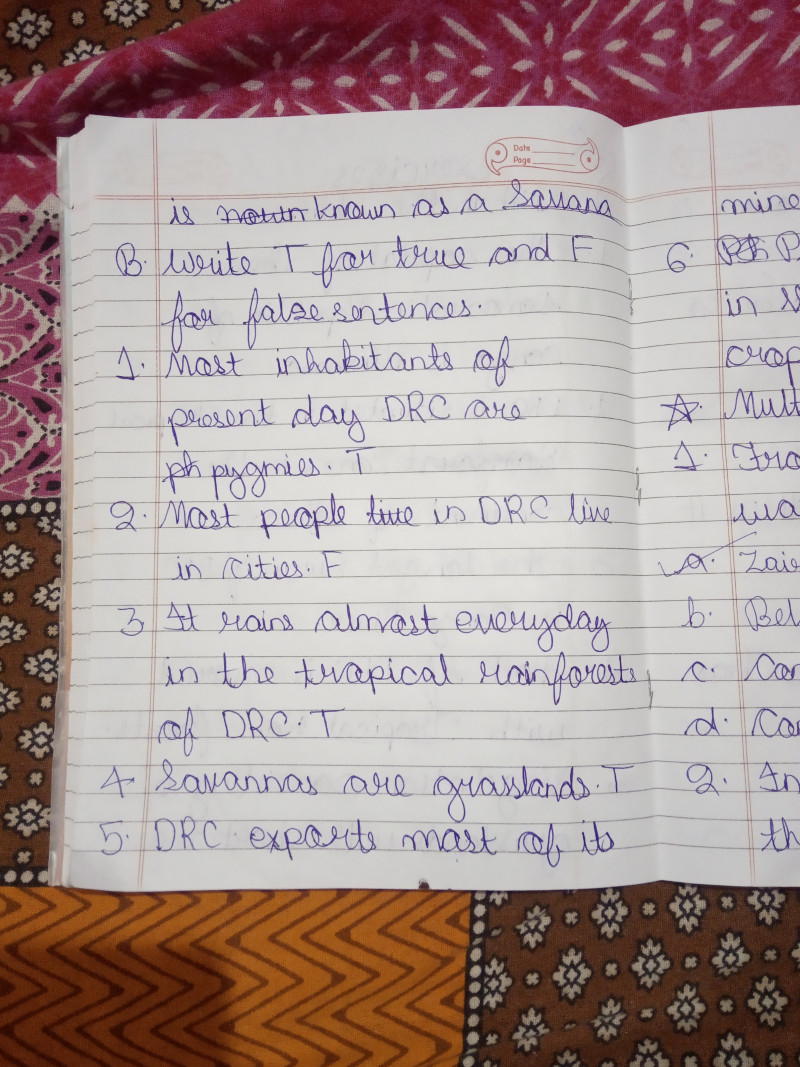 Date
Page
is known as a Savana
B. Write T for true and F
for false sentences.
1. Most inhabitants of
present day DRC are
ph pygmies. T
2. Most people live in DRC live
in cities. F
3 It rains almost everyday
in the tropical rainforests
of DRC. T
4 Savannas are grasslands. T
5. DRC exports most of its
mine
6. P
in
crop
☆. Mult
1. Fro
a. Zai
b. Bel
c. Con
d. Co
2. In
th